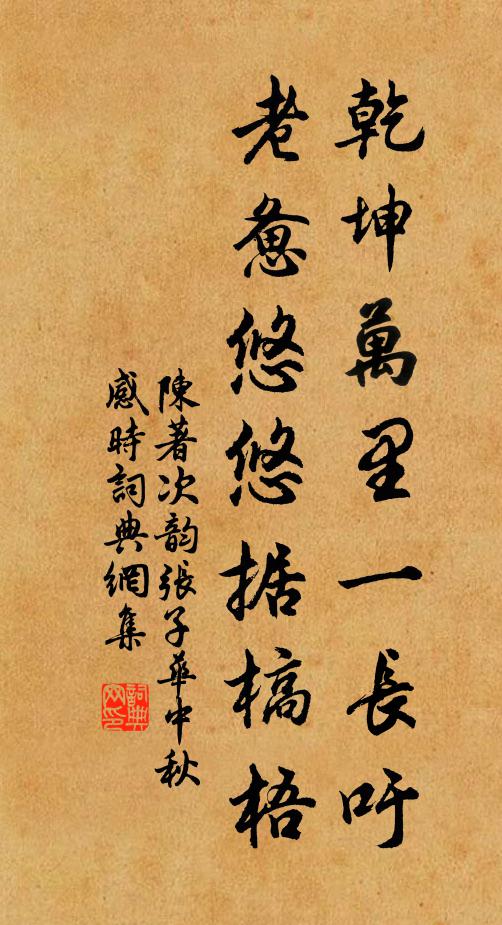 乾坤萬里一長吁
老惫悠悠据槁梧
陳著次韵張子華中秋
感時詞典網集
詞典网印